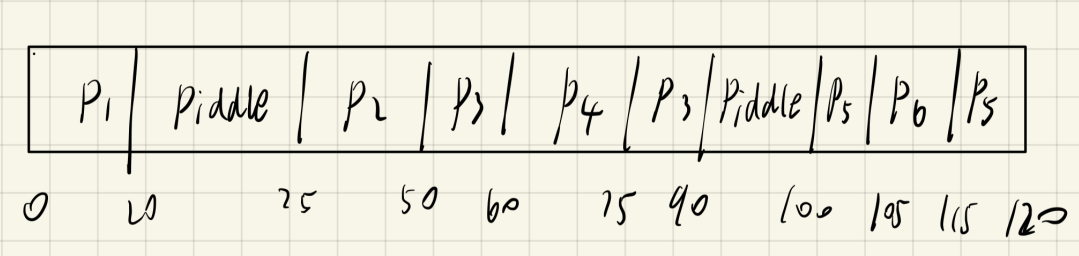 P1 Piddle P2 P3 P4 P3 Piddle P5 P6 P5
0 20 25 50 60 75 90 100 105 115 120